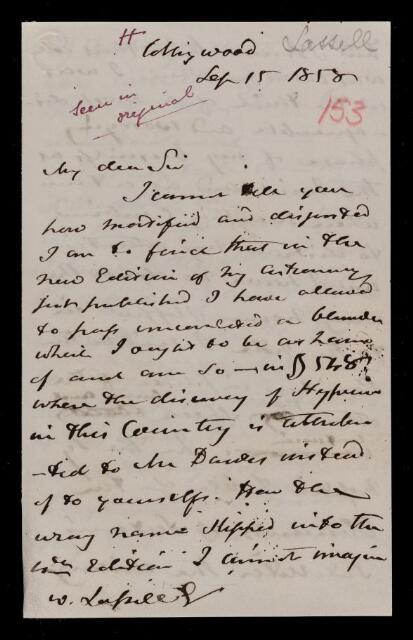 H Lassell
Collingwood
Sep 15 1858
seen in
original
153
My dear Sir
I cannot tell you
how mortified and disgusted
I am to find that in the
new Edition of my astronomy
just published I have allowed
to pass uncorrected a blunder
which I ought to be ashamed
of and am so – in § 548
where the discovery of Hyperion
in this Country is attribu
-ted to Mr Dawes instead
of to yourself. How the
wrong name slipped into the
Edition I cannot imagine
W. Lassell Esq